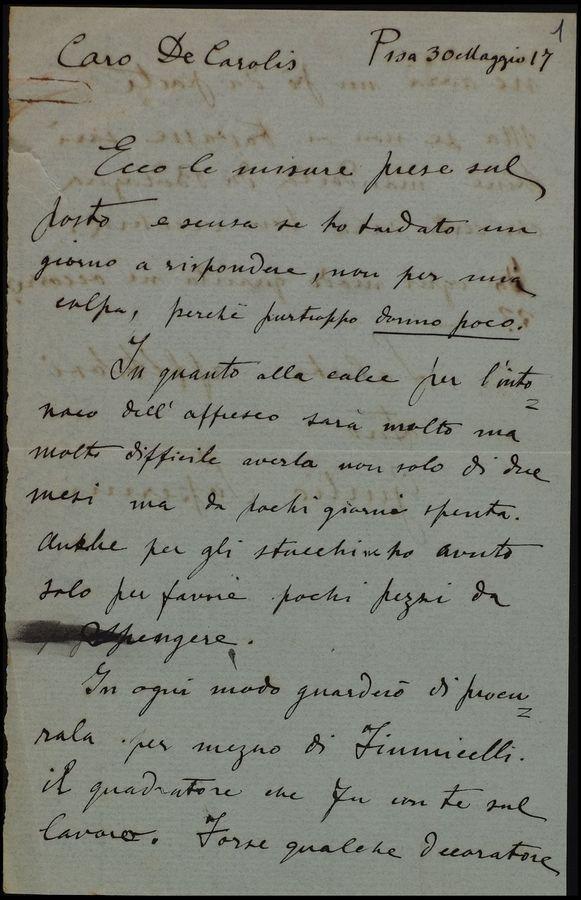 1
Caro De Carolis Pisa 30 Maggio 17
Ecco le misure prese sul
posto e scusa se ho tardato un
giorno a rispondere, non per mia
colpa, perchè purtroppo dormo poco.
In quanto alla calce per l'into=
naco dell' affresco sarà molto ma
molto difficile averla non solo di due
mesi ma da pochi giorni spenta.
Anche per gli stucchi ne ho avuto
solo per favore pochi pezzi da
spengere.
In ogni modo guarderò di procu=
rala per mezzo di
il quadratore che fu con te sul
lavoro. Forse qualche decoratore